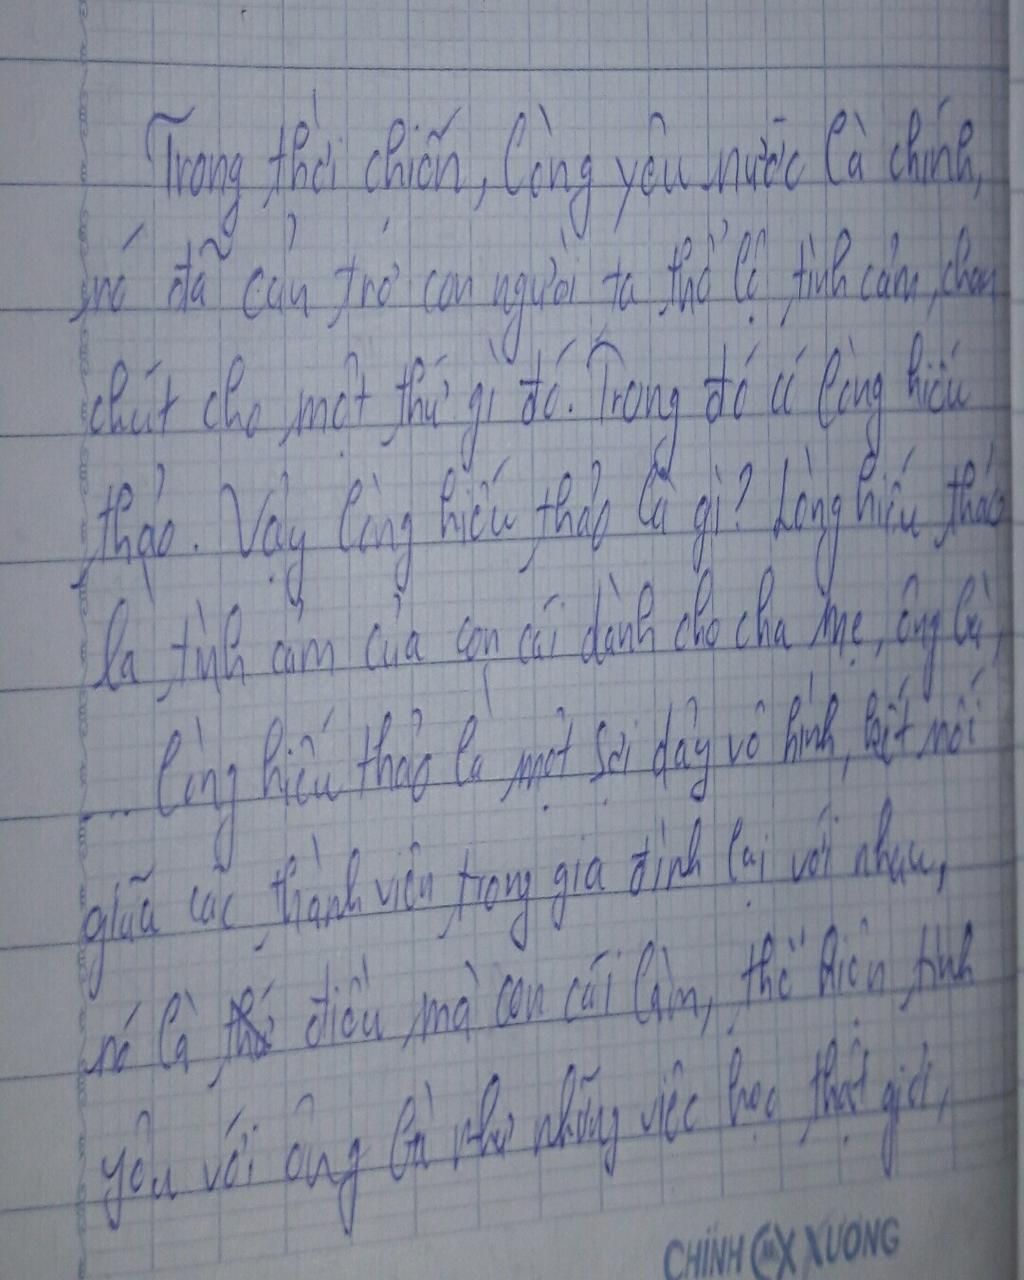 Trong thời chiến, lòng yêu nước là chính,
nó đã cản trở con người ta thổ lộ tình cảm, chăm
chút cho một thứ gì đó. Trong đó có lòng hiếu
thảo. Vậy lòng hiếu thảo là gì? Lòng hiếu thảo
là tình cảm của con cái dành cho cha mẹ, ông bà,
... lòng hiếu thảo là một sợi dây vô hình, kết nối
giữa các thành viên trong gia đình lại với nhau,
nó là điều mà con cái làm, thể hiện tình
yêu với ông bà như những việc học thật giỏi,
CHÍNH XƯƠNG